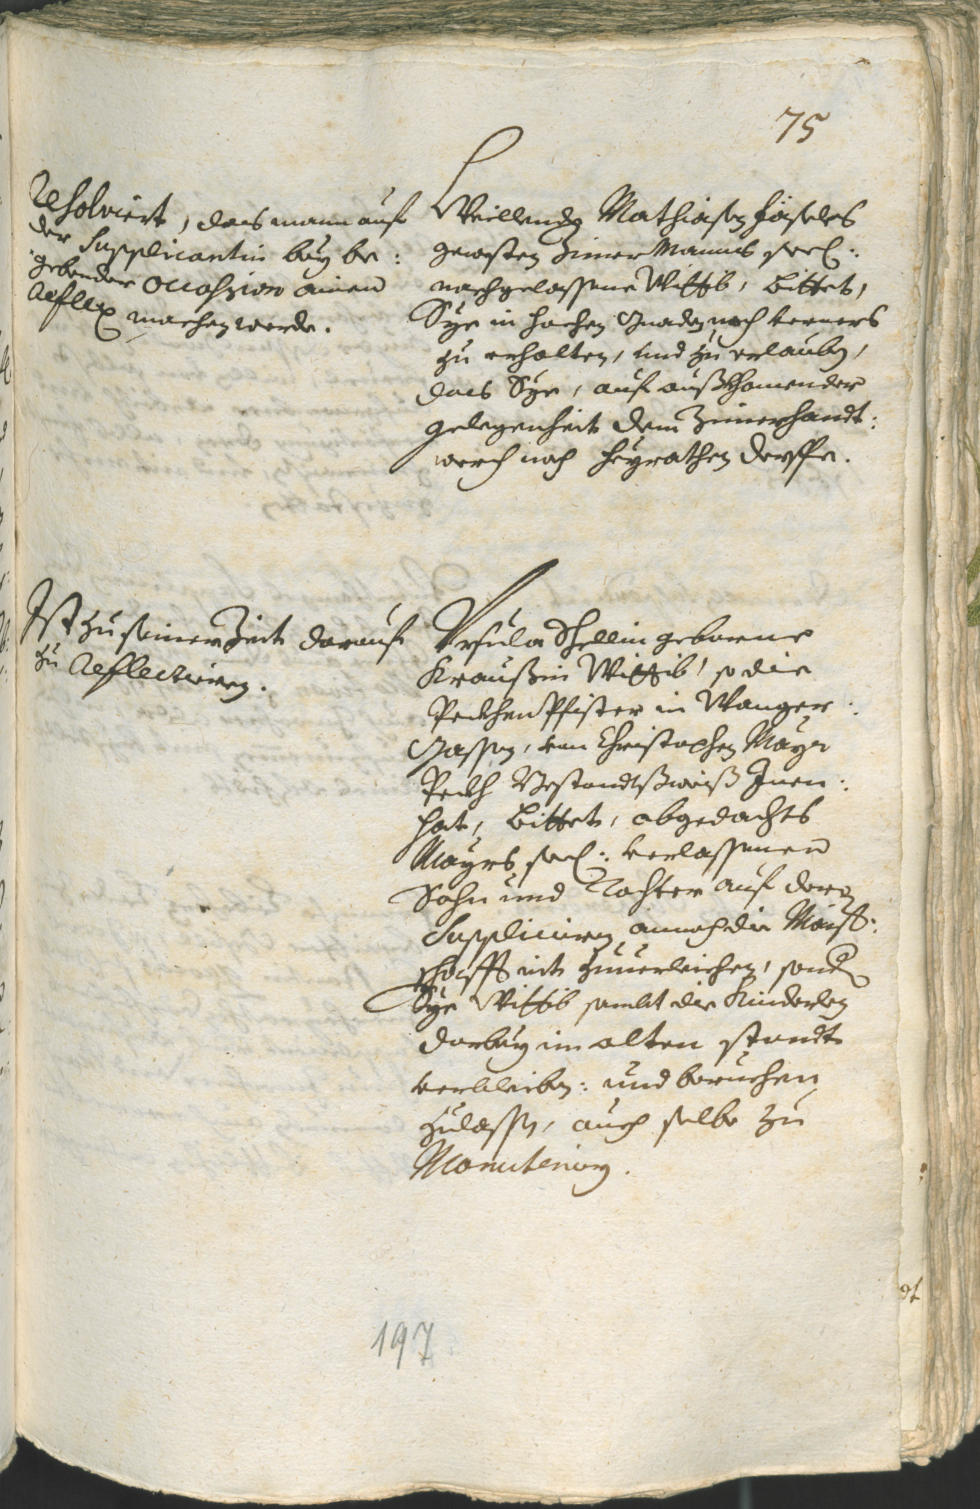 75
Resolviert, dass mann auf
der Supplicantin bey be:
gebender Occassion ainen
Reflex machen werde.
Weillendt Mathiasen
gewesten Zimer Manns seel:
nachgelassene Wittib, bittet,
Sye in hochen Gnaden noch ferners
zu erhalten, und zu erlauben,
dass Sye, auf
gelegenheit dem Zimerhandt:
werch nach heyrathen derffe.
Ist zu seiner Zeit darauf
zu Reflectiren.
Ursula Thellin geborene
Kraußin Wittib, so die
Peckhen Pfister in Wanger:
Gassen, von Christophen Mayr
Peckh Bestandtsweiß Inen:
hat, bittet, abgedachts
Mayrs seel: verlassenen
Sohn und Tochter auf dero
Suppliciren annoch die Maist:
schafft nit zuverleichen, sond
Sye Wittib sambt die Kinderlen
darbey im alten standt
verbleiben: und beruehen
zulassen, auch selbe zu
Manuteniren.
197